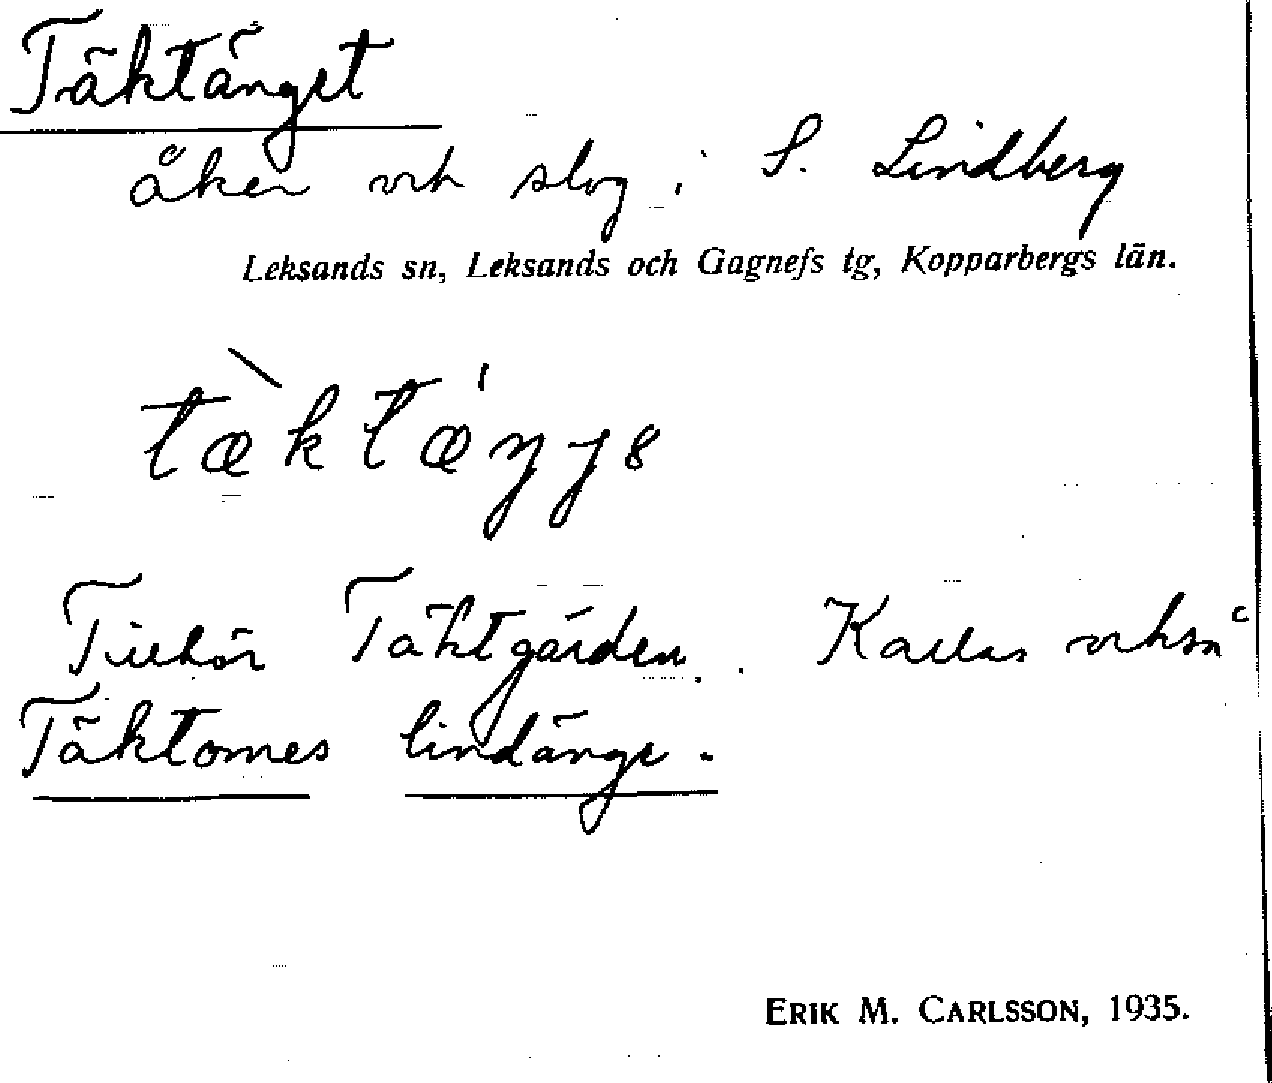 Täktänget
åker och slog i S. Lindberg
Leksands sn, Leksands och Gagnefs tg, Kopparbergs län.
tæ̀ktǽŋȷ8
Tillhör Täktgården. Kallas också
Täktomes lindänge.
ERIK M. CARLSSON, 1935.